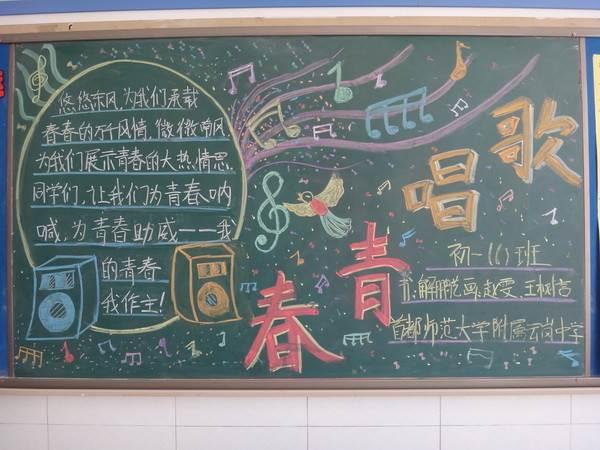 悠悠东风,为我们承载
青春的万千风情,微微南风
为我们展示青春的大热情思.
同学们,让我们为青春呐
喊,为青春助威——我
的青春
我作主!
歌唱青春
初一(1)班
画:赵雯、王树言
首都师范大学附属云岗中学